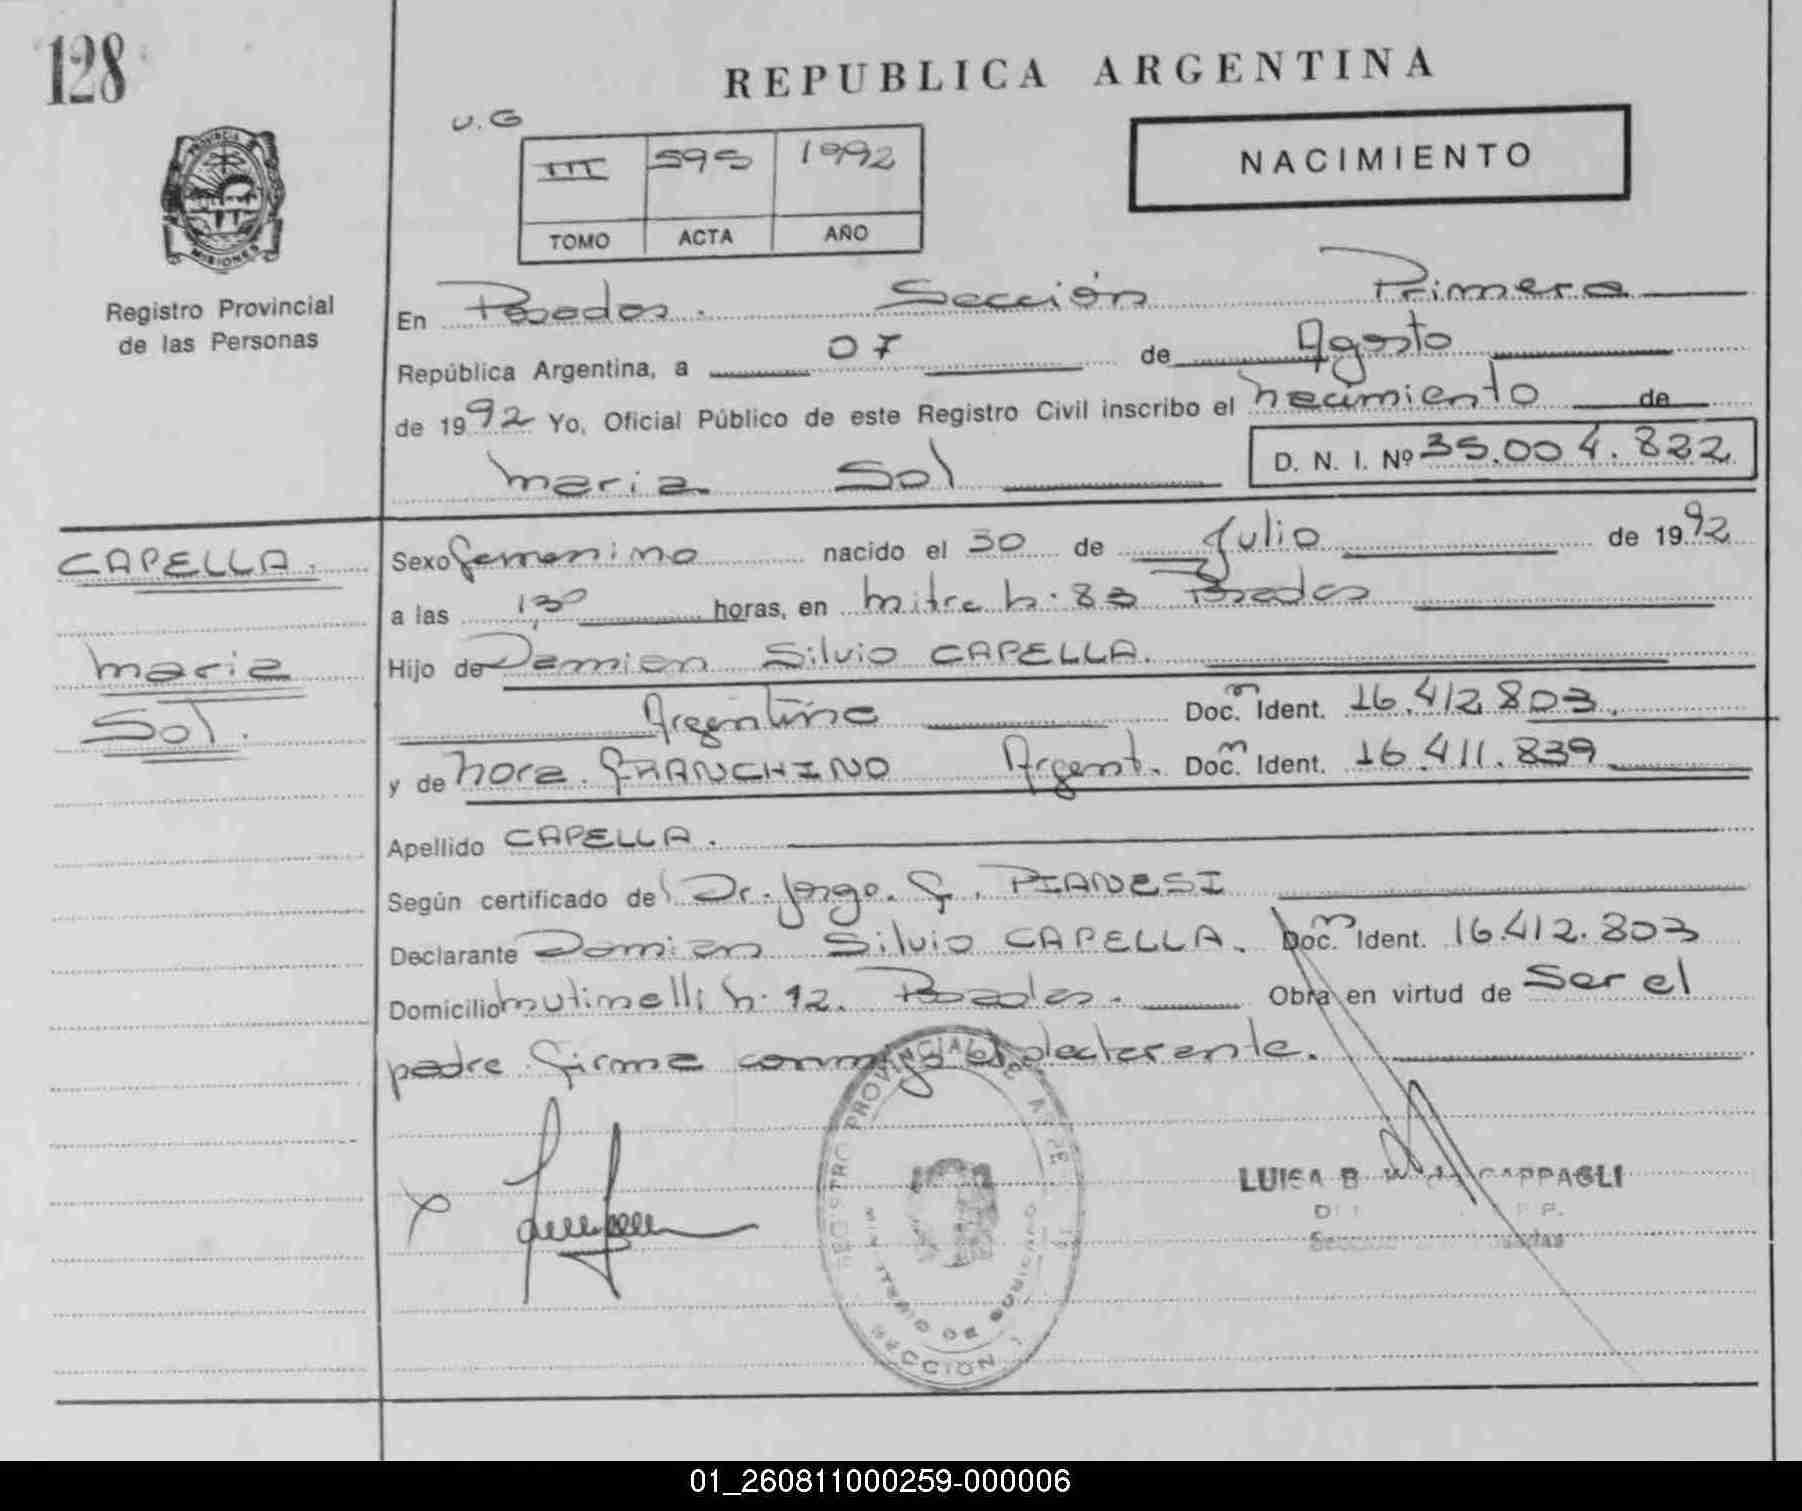 128
REPUBLICA ARGENTINA
U.G
III 595 1992
TOMO ACTA AÑO
NACIMIENTO
PROVINCIA
MISIONES
Registro Provincial
de las Personas
En Posadas. Sección Primera
República Argentina, a 07 de Agosto
de 1992 Yo, Oficial Público de este Registro Civil inscribo el nacimiento de
Maria Sol D. N. I. Nº 35.004.822
CAPELLA.
Maria
Sol.
Sexo femenino nacido el 30 de Julio de 1992
a las 1,30 horas, en Mitre N. 83 Posadas
Hijo de Damian Silvio CAPELLA.
Argentino Doc. m Ident. 16.412.803.
y de Nora FRANCHINO Argent. Doc. m Ident. 16.411.839
Apellido CAPELLA.
Según certificado del Dr. Jorge. G. PIANESI
Declarante Damian Silvio CAPELLA. Doc. m Ident. 16.412.803
Domicilio N. 12. Posadas. Obra en virtud de Ser el
padre firma conmigo el declarante.
REGISTRO PROVINCIAL DE
SECCION 1
LUISA B
Posadas
01_260811000259-000006